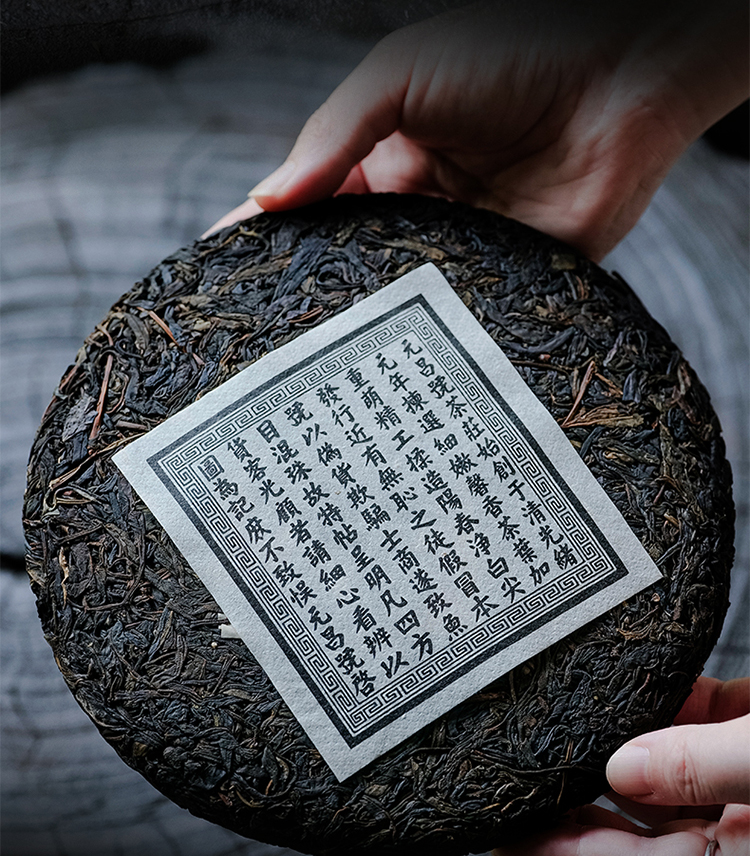 元昌號茶莊始創于清光緒
元年揀選細嫩馨香茶葉加
重萌精工揉造陽春淨白尖
發行近有無恥之徒假冒本
號以偽貨欺騙士商遂致魚
目混珠故特帖呈明凡四方
貨客光顧若請細心看辨以
圖為記庶不致悞元昌號啓